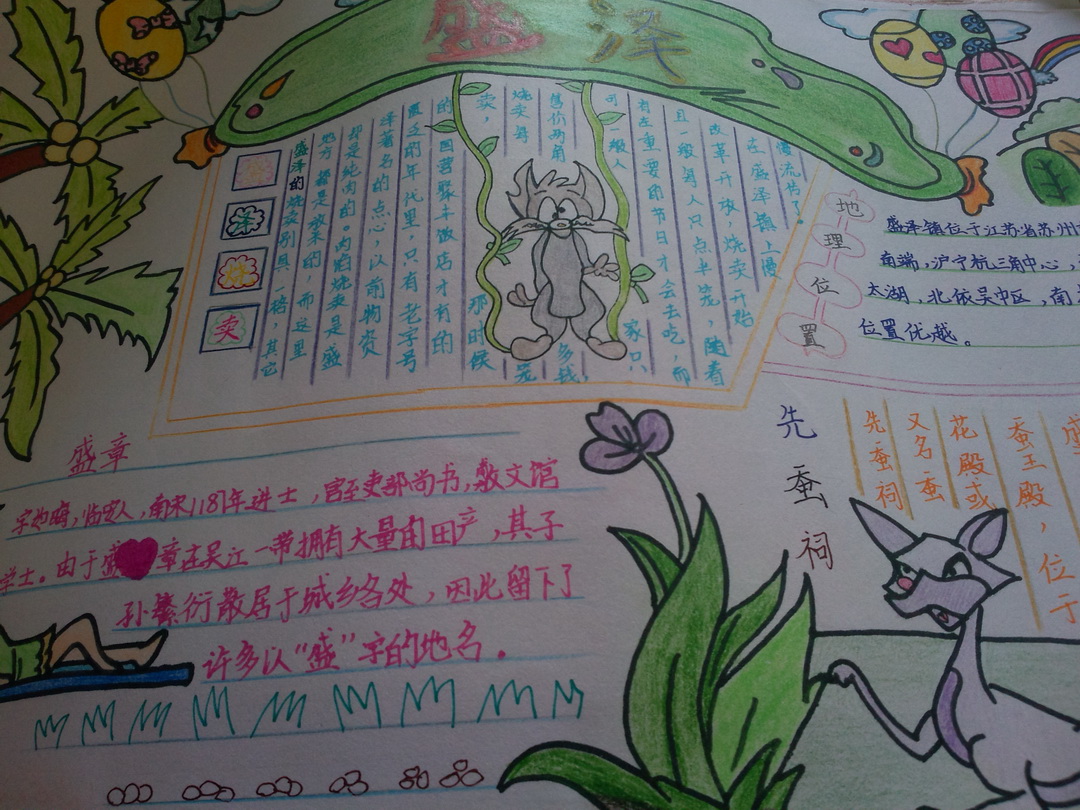 盛泽
泽
烧
卖
盛泽的烧卖别具一格,其它
地方都是糯米的,而这里
却是纯肉的。肉馅烧卖是盛
泽著名的点心,以前物资
匮乏的年代里,只有老字号
的国营聚丰饭店才有的
卖,那时候
烧卖每笼
售价两角多钱,
可一般人家只
有在重要的节日才会去吃,而
且一般每人只点半笼,随着
改革开放,烧卖开始
在盛泽镇上慢
慢流传了。
地理位置
盛泽镇位于江苏省苏州
南端,沪宁杭三角中心,
太湖,北依吴中区,南
位置优越。
盛章
南宋1181年进士,官至吏部尚书,敷文馆
学士。由于盛章在吴江一带拥有大量田产,其子
孙繁衍散居于城乡各处,因此留下了
许多以“盛”字的地名。
先蚕祠
先蚕祠
又名蚕
花殿或
蚕王殿,位于
盛